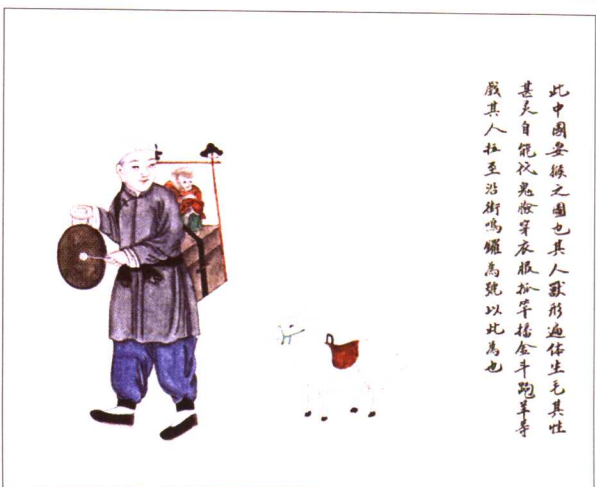 此中國耍猴之圖也其人獸形遍体生毛其性
甚灵自能代鬼臉穿衣服扒竿搭金斗跑羊等
戲其人拉至沿街鳴鑼為號以此為也